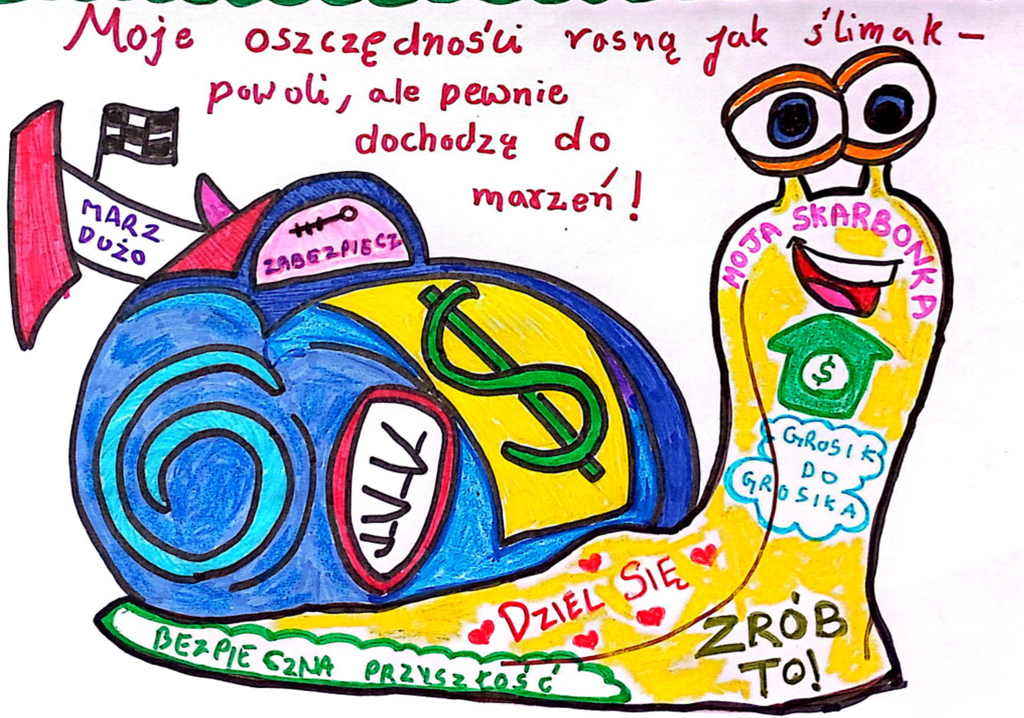 Moje oszczędności rosną jak ślimak –
powoli, ale pewnie
dochodzę do
marzeń!
MARZ
DUŻO
ZABEZPIECZ
MOJA SKARBONKA
$
$
GROSIK
DO
GROSIKA
DZIEL SIĘ
ZRÓB
TO!
BEZPIECZNA PRZYSZŁOŚĆ